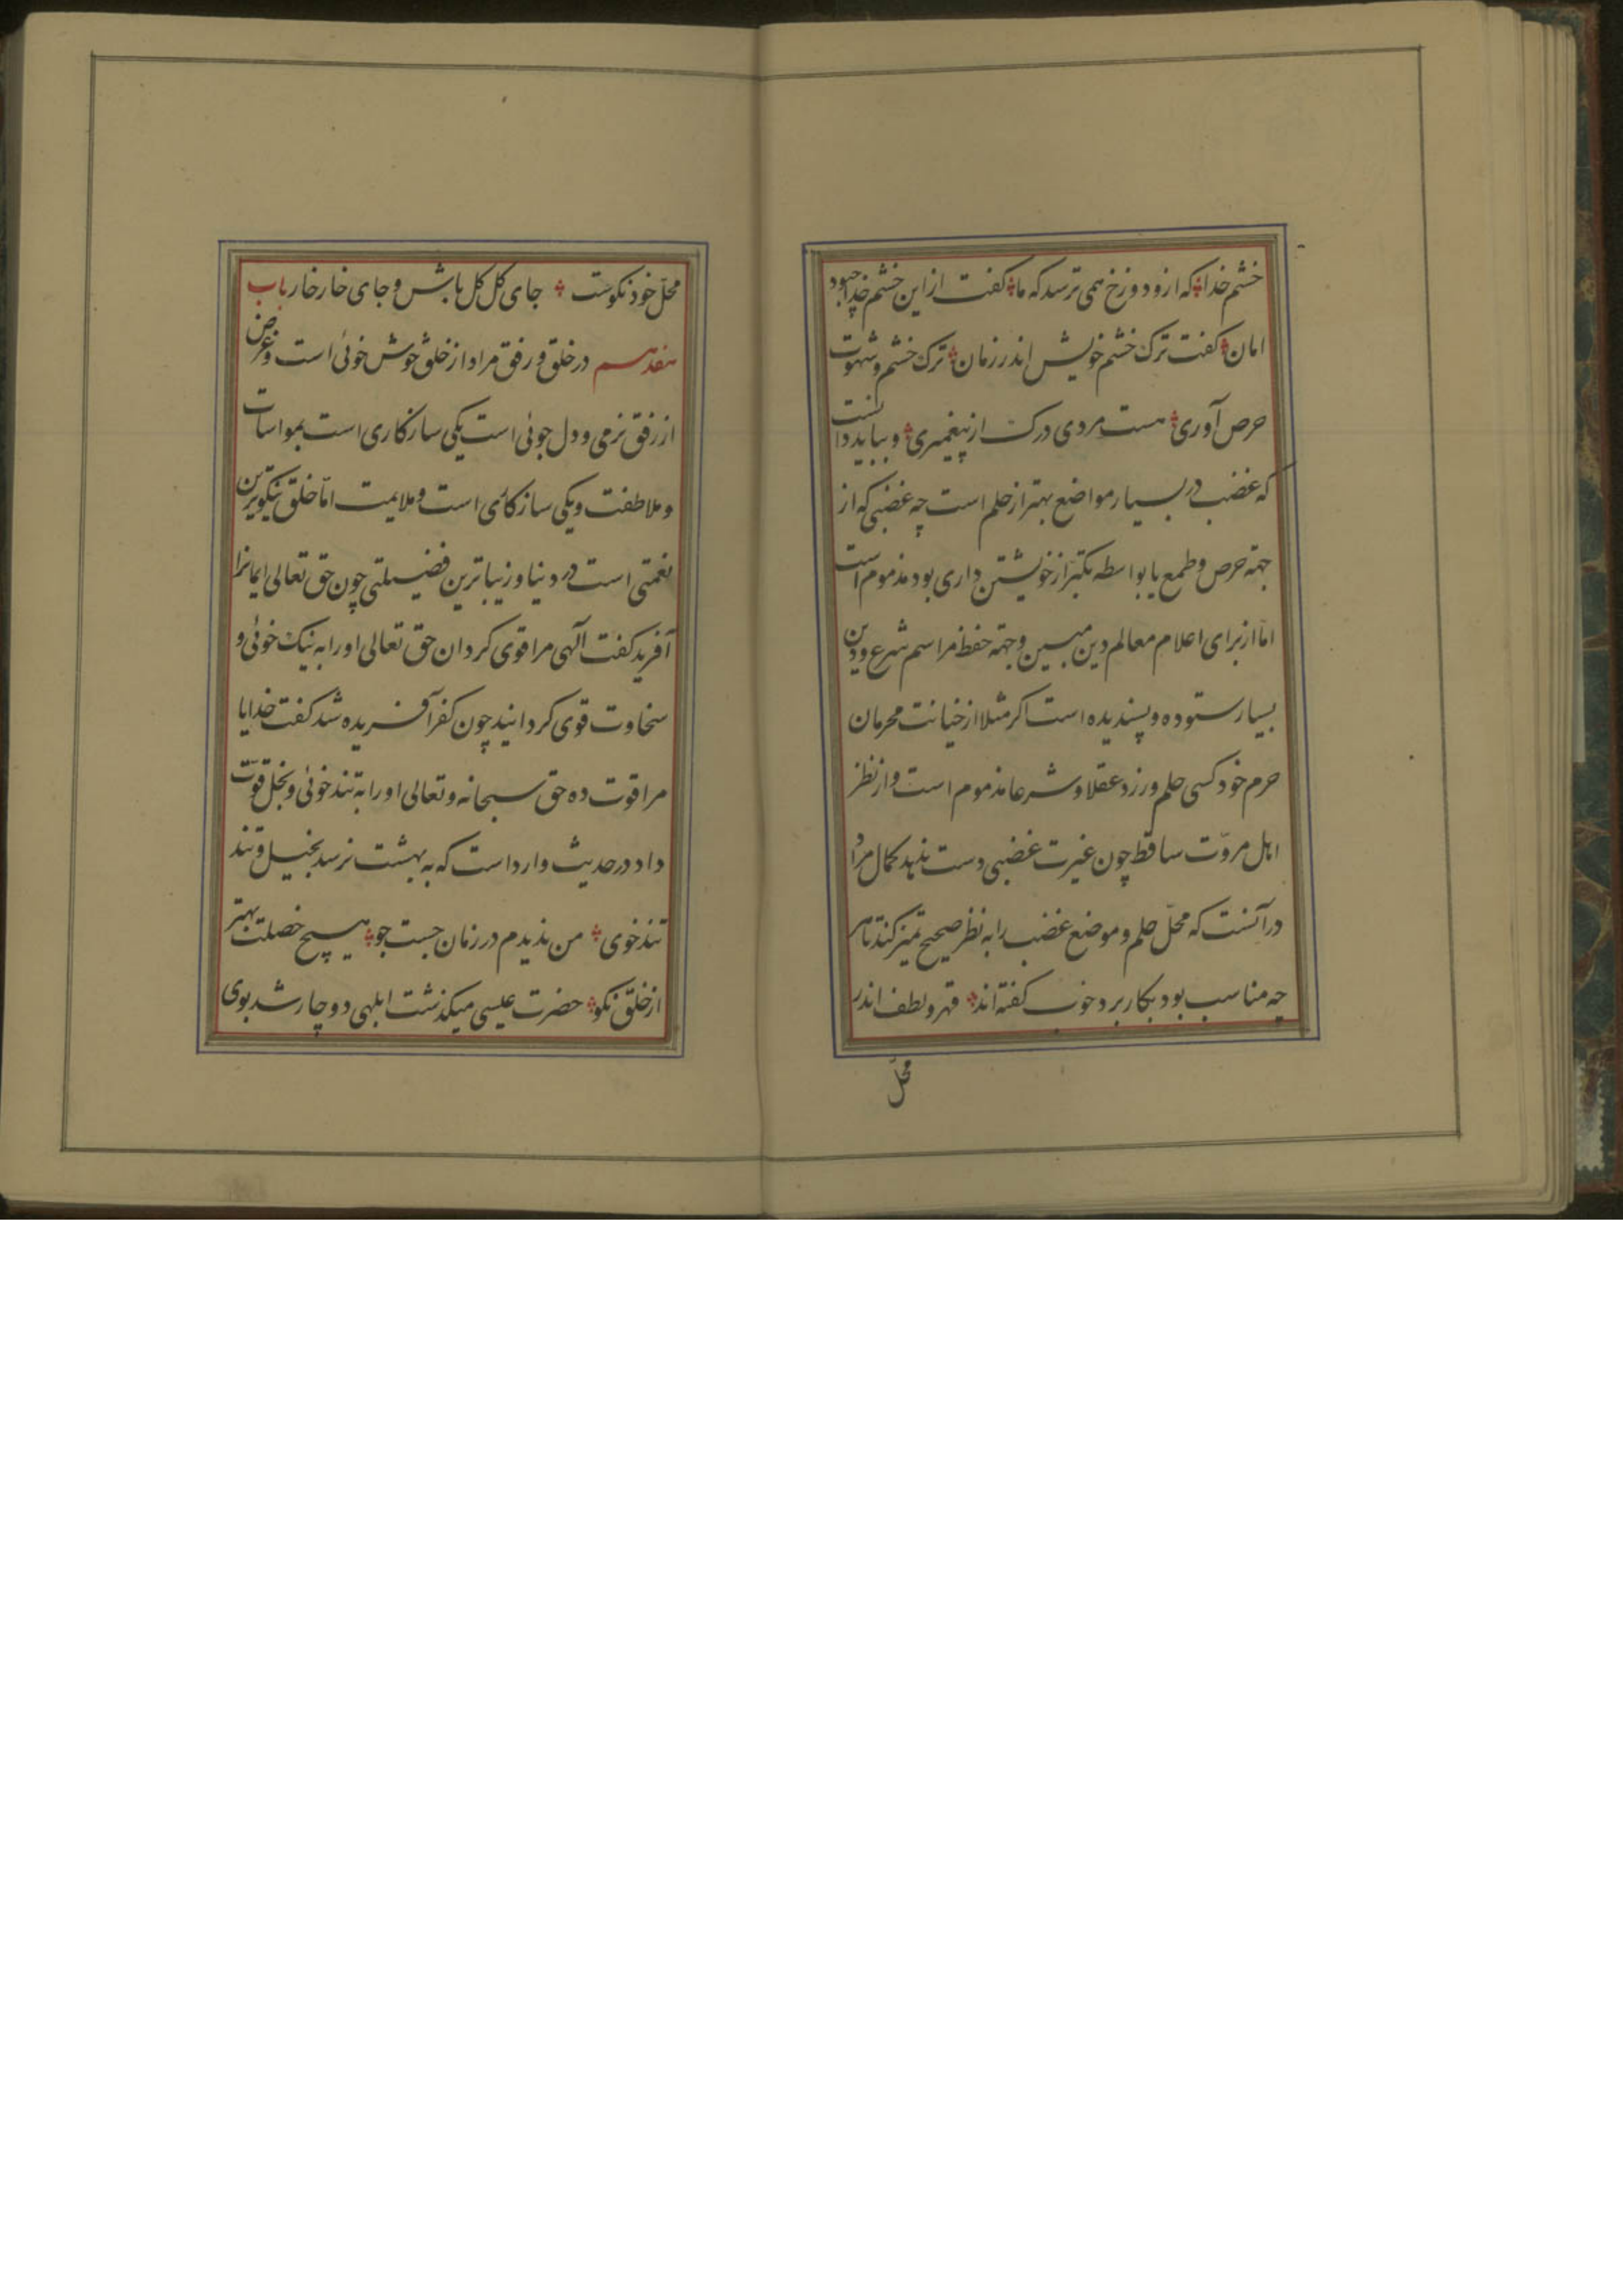 خشم خدا ؞ که ازو دوزخ همی ترسد که ما ؞ گفت از این خشم خدا چبود
امان ؞ گفت ترک خشم خویش اندر زمان ؞ ترک خشم و شهوت
حرص آوری ؞ هست مردی درک از پیغمبری ؞ و بباید دانست
که غضب در بسیار مواضع بهتر از حلم است چه غضبی که از
جهة حرص و طمع یا بواسطه تکبر از خویشتن داری بود مذموم است
اما از برای اعلام معالم دین مبین و جهة حفظ مراسم شرع و دین
بسیار ستوده و پسندیده است اکر مثلا از خیانت محرمان
حرم خود کسی حلم ورزد عقلا و شرعا مذموم است و از نظر
اهل مروّت ساقط چون غیرت غضبی دست ندهد کمال مرد
در آنست که محلّ حلم و موضع غضب را به نظر صحیح تمیز کند تا هر
چه مناسب بود بکار برد خوب کفته اند ؞ قهر و لطف اندر
محلّ
محلّ خود نکوست ؞ جای کل کل باش و جای خار خار باب
هفدهم در خلق و رفق مراد از خلق خوش خوئی است و غرض
از رفق نرمی و دل جوئی است یکی سازکاری است بمواسات
و ملاطفت و یکی سازکاری است و ملایمت امّا خلق نیکوترین
نعمتی است در دنیا و زیباترین فضیلتی چون حق تعالی ایمانرا
آفرید کفت آلهی مرا قوی کردان حق تعالی او را به نیک خوئی و
سخاوت قوی کردانید چون کفر آفریده شد کفت خدایا
مرا قوت ده حق سبحانه و تعالی او را به تند خوئی و بخل قوّت
داد در حدیث وارد است که به بهشت نرسد بخیل و تند
تند خوی ؞ من ندیدم در زمان جست جو ؞ هیچ خصلت بهتر
از خلق نکو ؞ حضرت عیسی میکذشت ابلهی دوچار شد بوی